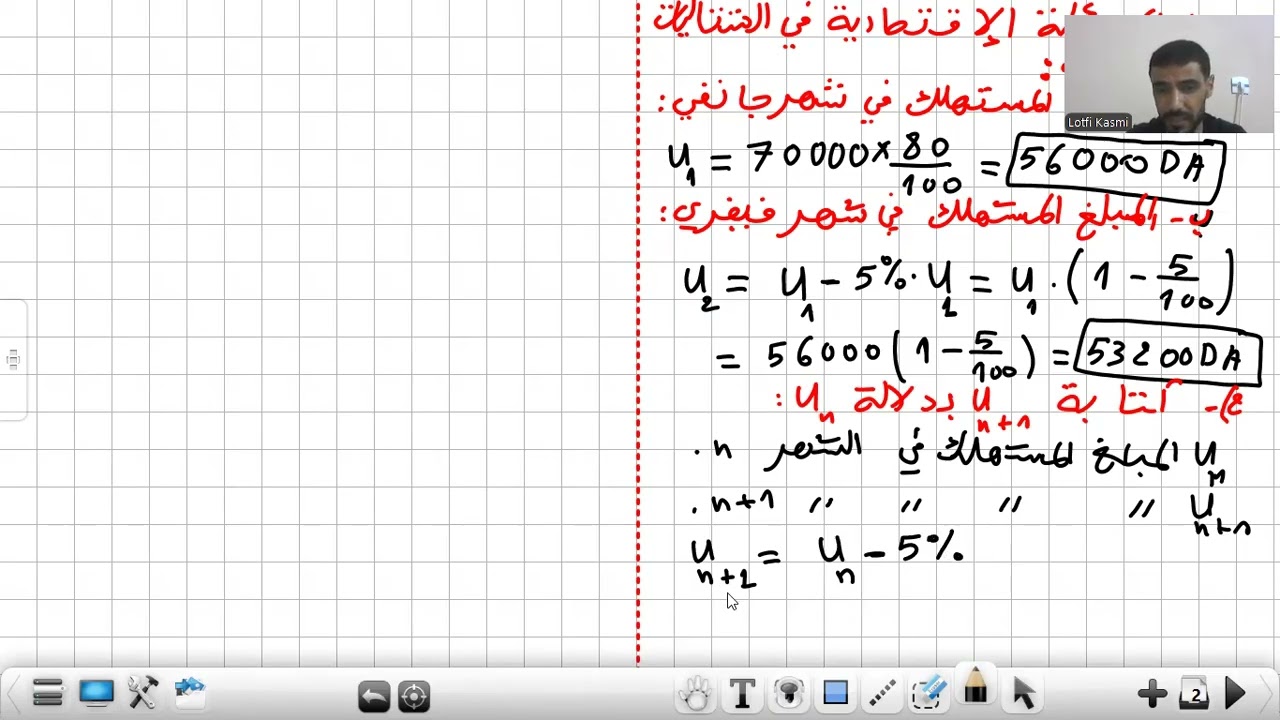 الإقتصادية في المتتاليات
المستهلك في شهر جانفي :
Lotfi Kasmi
u₁ = 70000 × 80/100 = 56000 DA
ب- المبلغ المستهلك في شهر فيفري :
u₂ = u₁ - 5% · u₁ = u₁ · (1 - 5/100)
= 56000 (1 - 5/100) = 53200 DA
ج)- كتابة uₙ₊₁ بدلالة uₙ :
uₙ المبلغ المستهلك في الشهر n .
uₙ₊₁ " " " " n+1 .
uₙ₊₁ = uₙ - 5%
2